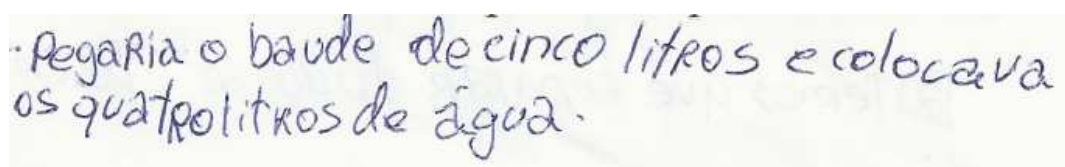 . Pegaria o baude de cinco litros e colocava
os quatro litros de água.